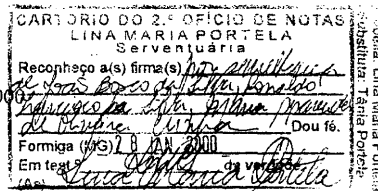 CARTÓRIO DO 2.º OFÍCIO DE NOTAS
LINA MARIA PORTELA
Serventuária
Reconheço a(s) firma(s) por semelhança
de João Bosco da Silva,
da Silva,
de Oliveira Cunha Dou fé.
Formiga (MG) 28 JAN. 2000
Em test.º da verdade
Lina Maria Portela
000
Lina Maria Portela
Substituta: Tânia Portela